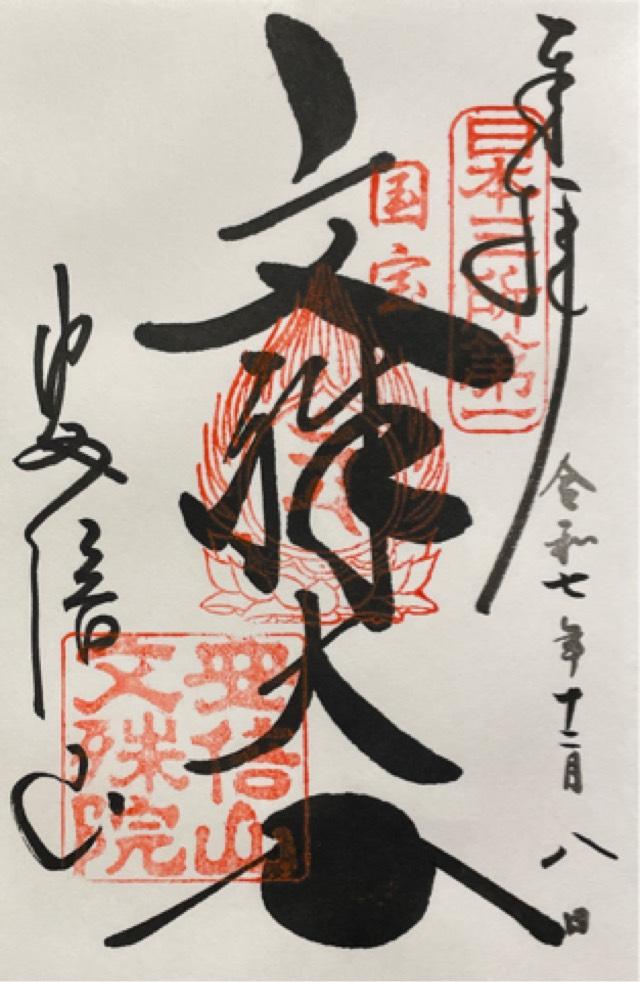 奉拝
日本三所第一
令和七年十二月八日
国宝
文殊大
安倍山
安倍山
文殊院